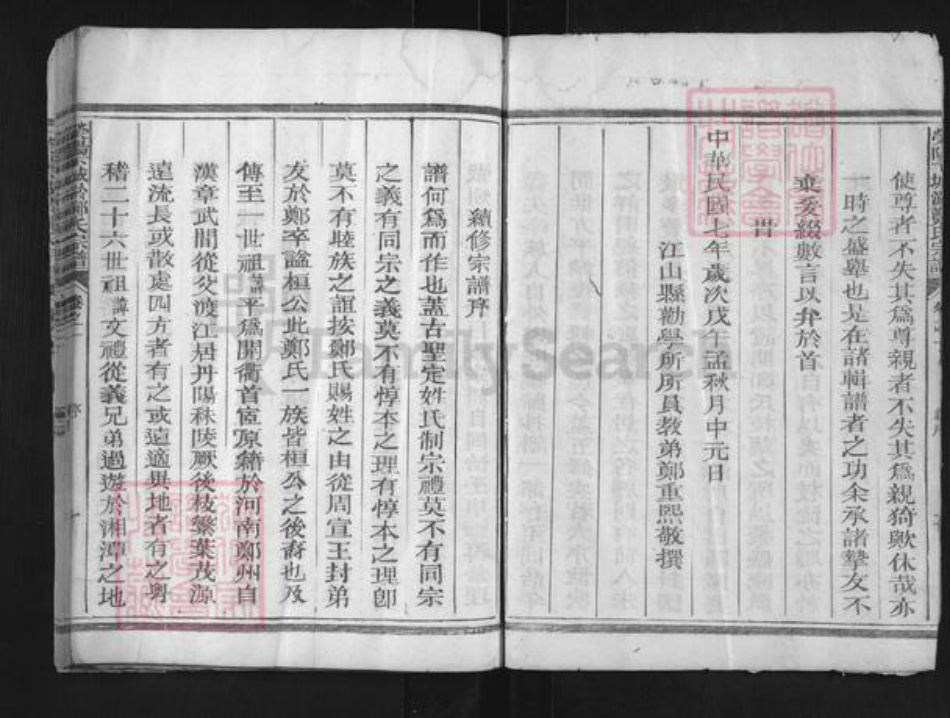 使尊者不失其爲尊親者不失其爲親猗歟休哉亦
一時之盛舉也是在諸輯譜者之功余承諸摯友不
棄爰綴數言以弁於首
時
中華民國七年歲次戊午孟秋月中元日
江山縣勸學所所員教弟鄭重熙敬撰
續修宗譜序
譜何爲而作也蓋古聖定姓氏制宗禮莫不有同宗
之義有同宗之義莫不有惇本之理有惇本之理卽
莫不有睦族之誼按鄭氏賜姓之由從周宣王封弟
友於鄭卒謚桓公此鄭氏一族皆桓公之後裔也及
傳至一世祖諱平爲開衢首宦原籍於河南鄭州自
漢章武間從父渡江居丹陽秣陵厥後枝繁葉茂源
遠流長或散處四方者有之或遠適異地者有之粤
稽二十六世祖諱文禮從義兄弟過遊於湘潭之地
FamilySearch